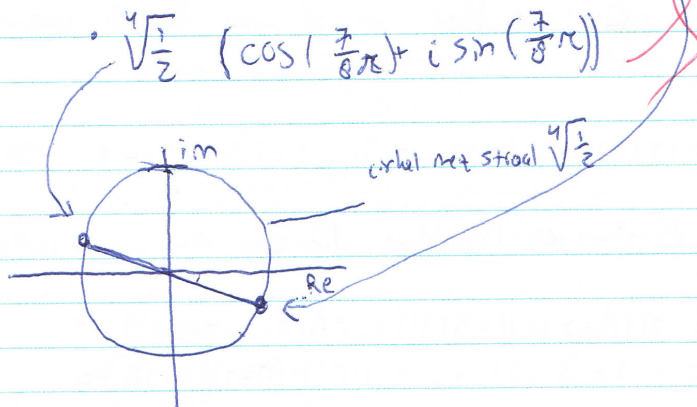 • ∜(1/2) (cos( 7/8 π)+ i sin (7/8 π))
im
cirkel met straal ∜(1/2)
Re